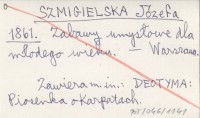 SZMIGIELSKA Józefa
1861. Zabawy umysłowe dla
młodego wieku. Warszawa.
Zawiera m.in.: DEOTYMA:
Piosenka o Karpatach.